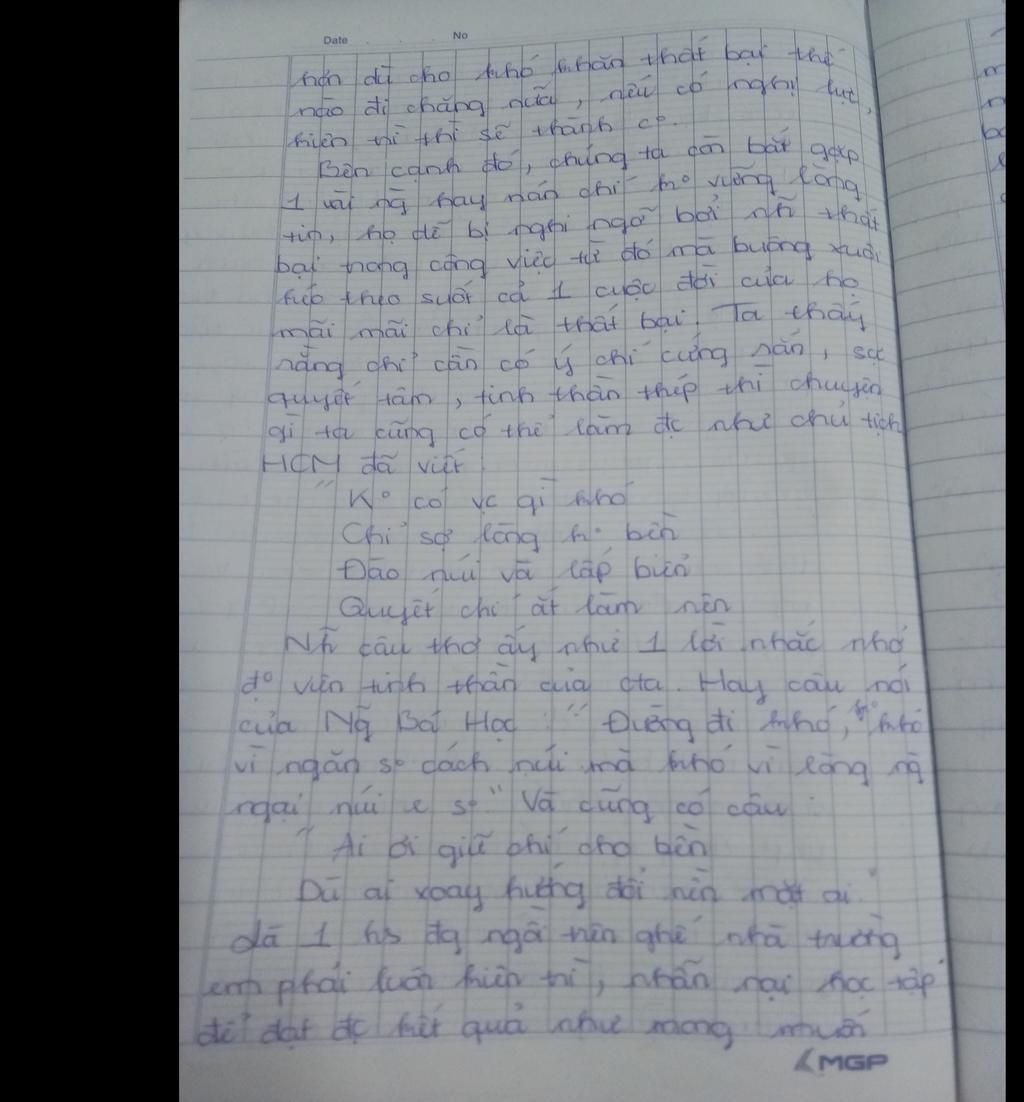 Date No
hơn dù cho khó khăn thất bại thế
nào đi chăng nữa, nếu có nghị lực,
kiên trì thì sẽ thành cp.
Bên cạnh đó, chúng ta còn bắt gặp
1 vài ng hay nản chí ko vững lòng
tin, họ dễ bị nghi ngờ bởi nh~ thất
bại trong công việc từ đó mà buông xuôi
tiếp theo suốt cả 1 cuộc đời của họ
mãi mãi chỉ là thất bại. Ta thấy
rằng chỉ cần có ý chí cứng rắn, sự
quyết tâm, tinh thần thép thì chuyện
gì ta cũng có thể làm đc như chủ tịch
HCM đã viết
"Ko có vc gì khó
Chỉ sợ lòng ko bền
Đào núi và lấp biển
Quyết chí ắt làm nên
Nh~ câu thơ ấy như 1 lời nhắc nhở
đo viên tinh thần của cta. Hay câu nói
của Ng~ Bá Học: "Đường đi khó, ko khó
vì ngăn sô cách núi mà khó vì lòng ng
ngại núi e sô" Và cũng có câu:
"Ai ơi giữ chí cho bền
Dù ai xoay hướng đổi nền mặt ai"
Là 1 hs đg ngồi trên ghế nhà trường
em phải luôn kiên trì, nhẫn nại học tập
để đạt đc kết quả như mong muốn
MGP